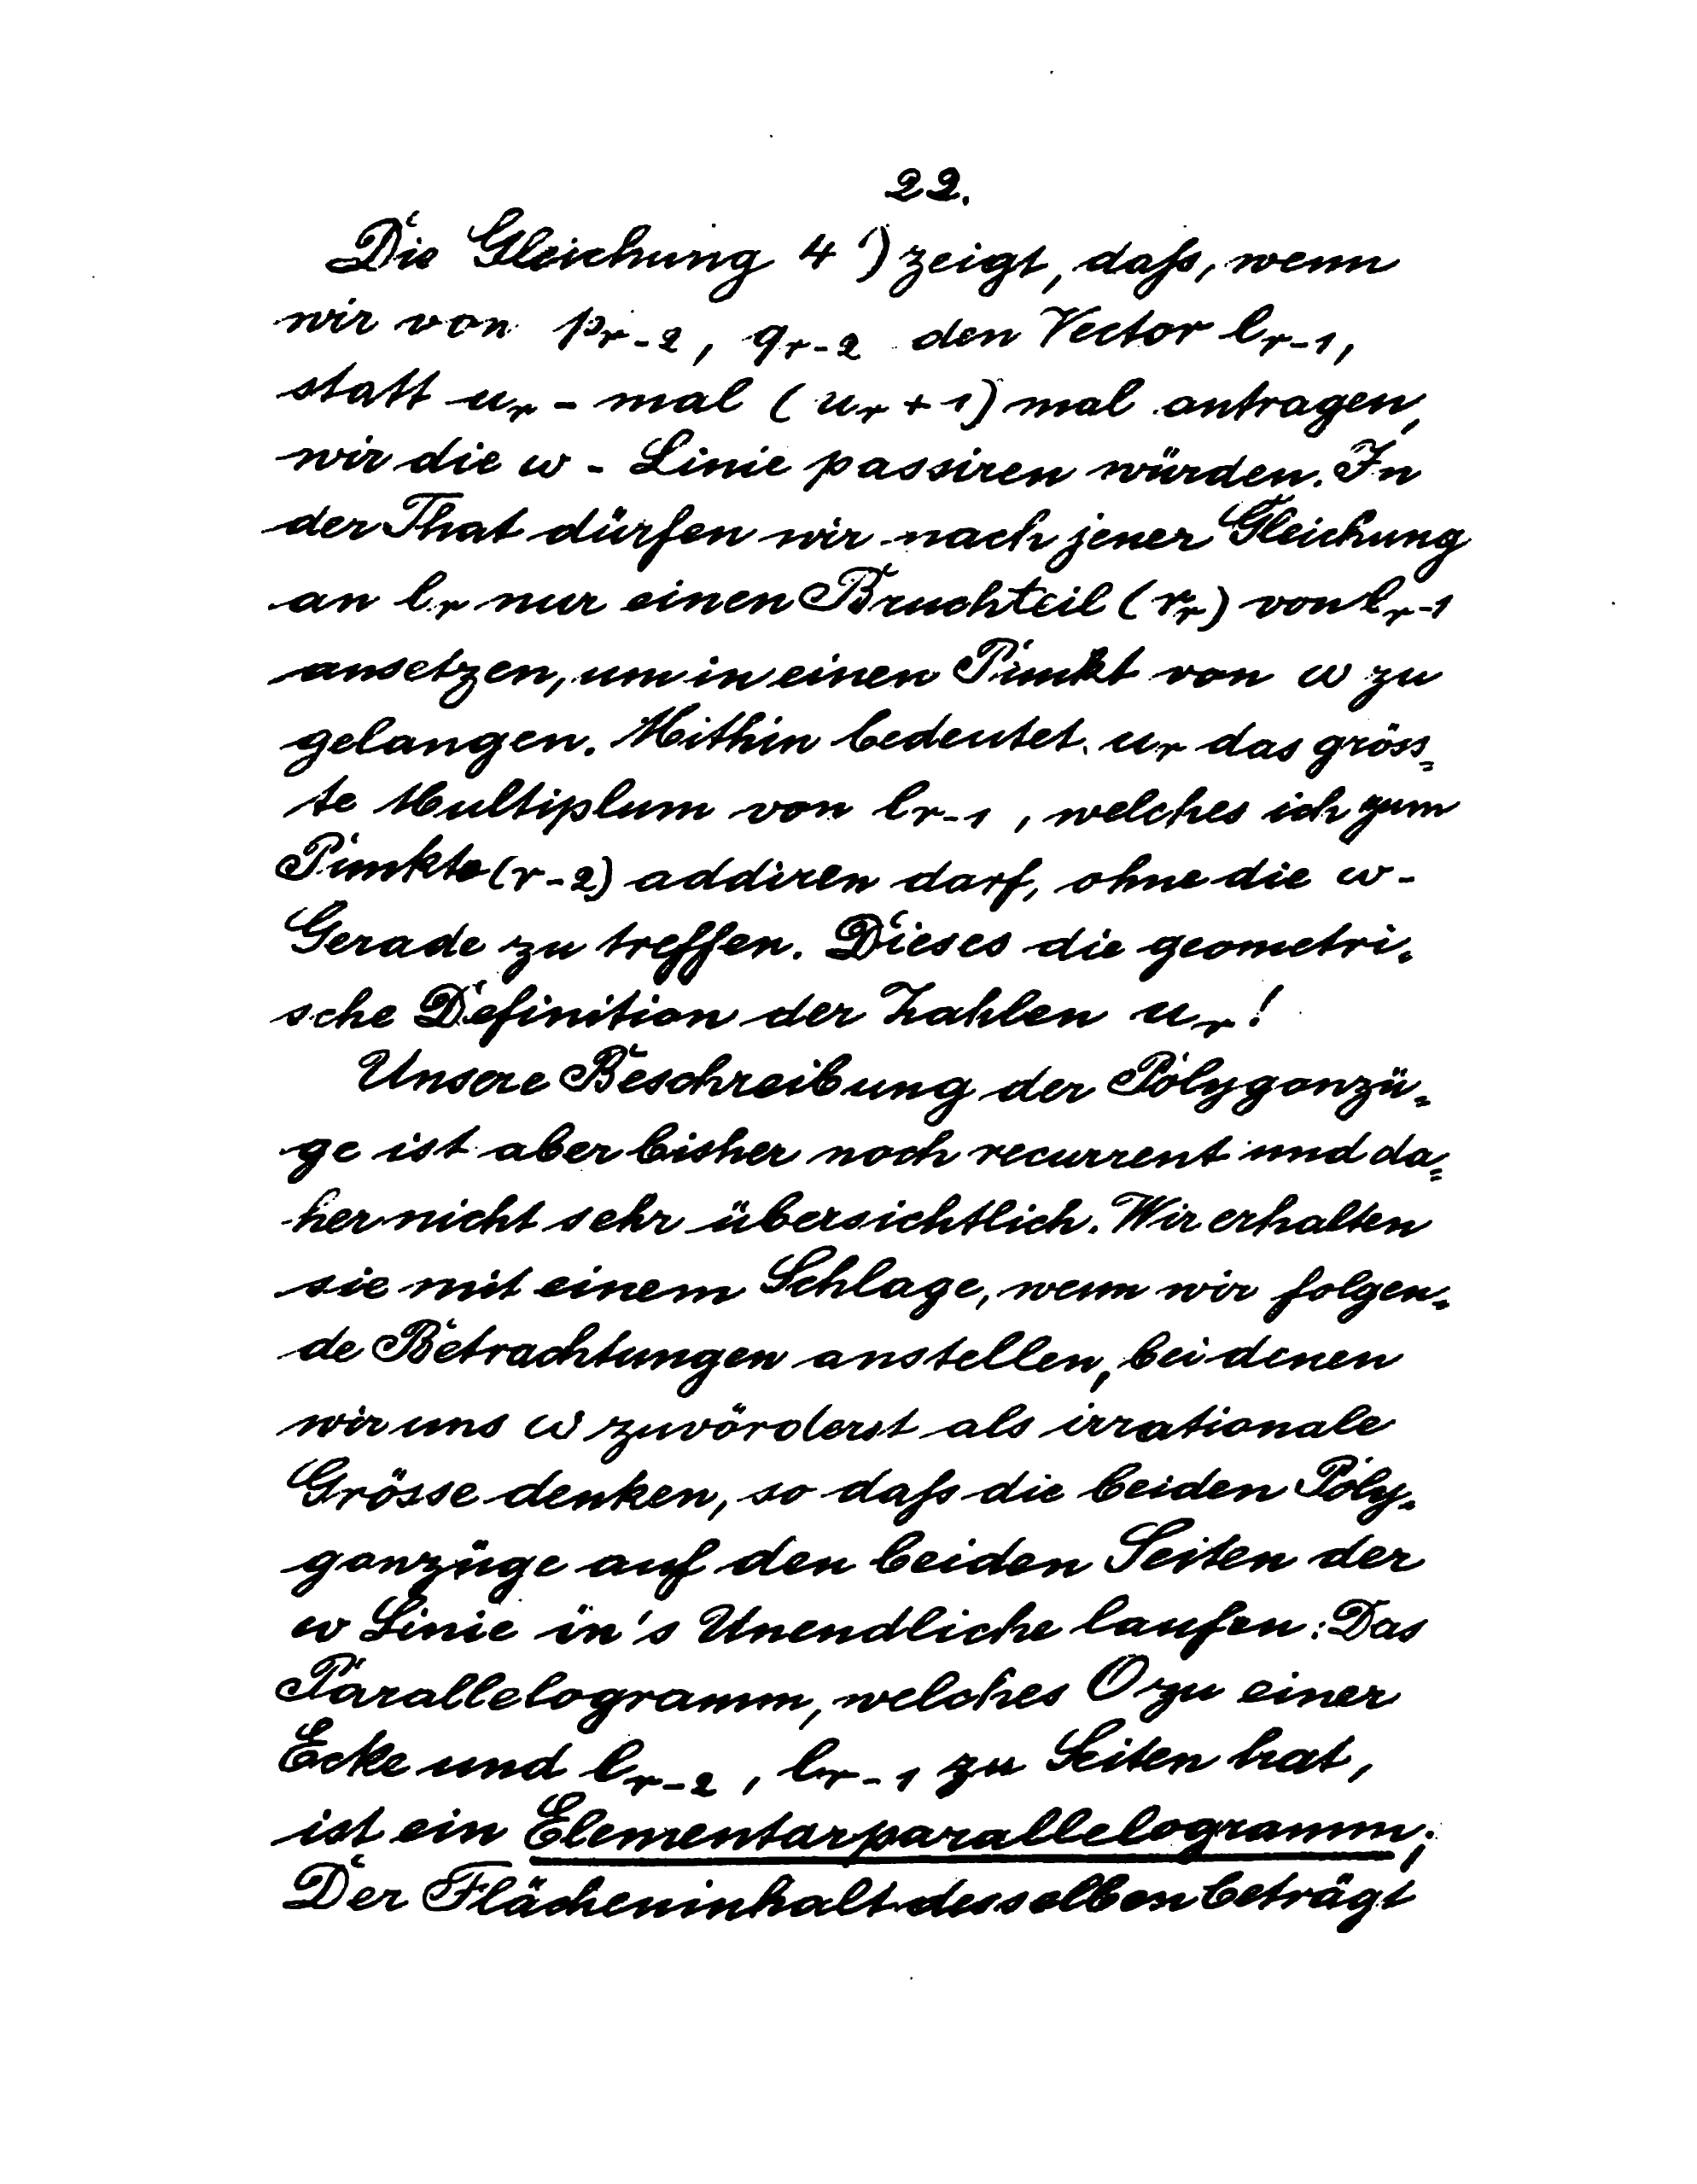 22.
Die Gleichung 4') zeigt, daſs, wenn
wir von p_{r-2}, q_{r-2} den Vector l_{r-1},
statt u_r - mal (u_r + 1) mal antragen,
wir die w - Linie passiren würden. In
der That dürfen wir nach jener Gleichung
an l_r nur einen Bruchteil (r_r) von l_{r-1}
ansetzen, um in einen Punkt von w zu
gelangen. Mithin bedeutet u_r das gröss=
te Multiplum von l_{r-1}, welches ich zum
Punkte (r-2) addiren darf, ohne die w-
Gerade zu treffen. Dieses die geometri=
sche Definition der Zahlen u_r!
Unsere Beschreibung der Polygonzü=
ge ist aber bisher noch recurrent und da=
her nicht sehr übersichtlich. Wir erhalten
sie mit einem Schlage, wenn wir folgen=
de Betrachtungen anstellen, bei denen
wir uns w zuvörderst als irrationale
Grösse denken, so daſs die beiden Poly=
gonzüge auf den beiden Seiten der
w Linie in's Unendliche laufen: Das
Parallelogramm, welches O zu einer
Ecke und l_{r-2}, l_{r-1} zu Seiten hat,
ist ein Elementarparallelogramm;
Der Flächeninhalt desselben beträgt